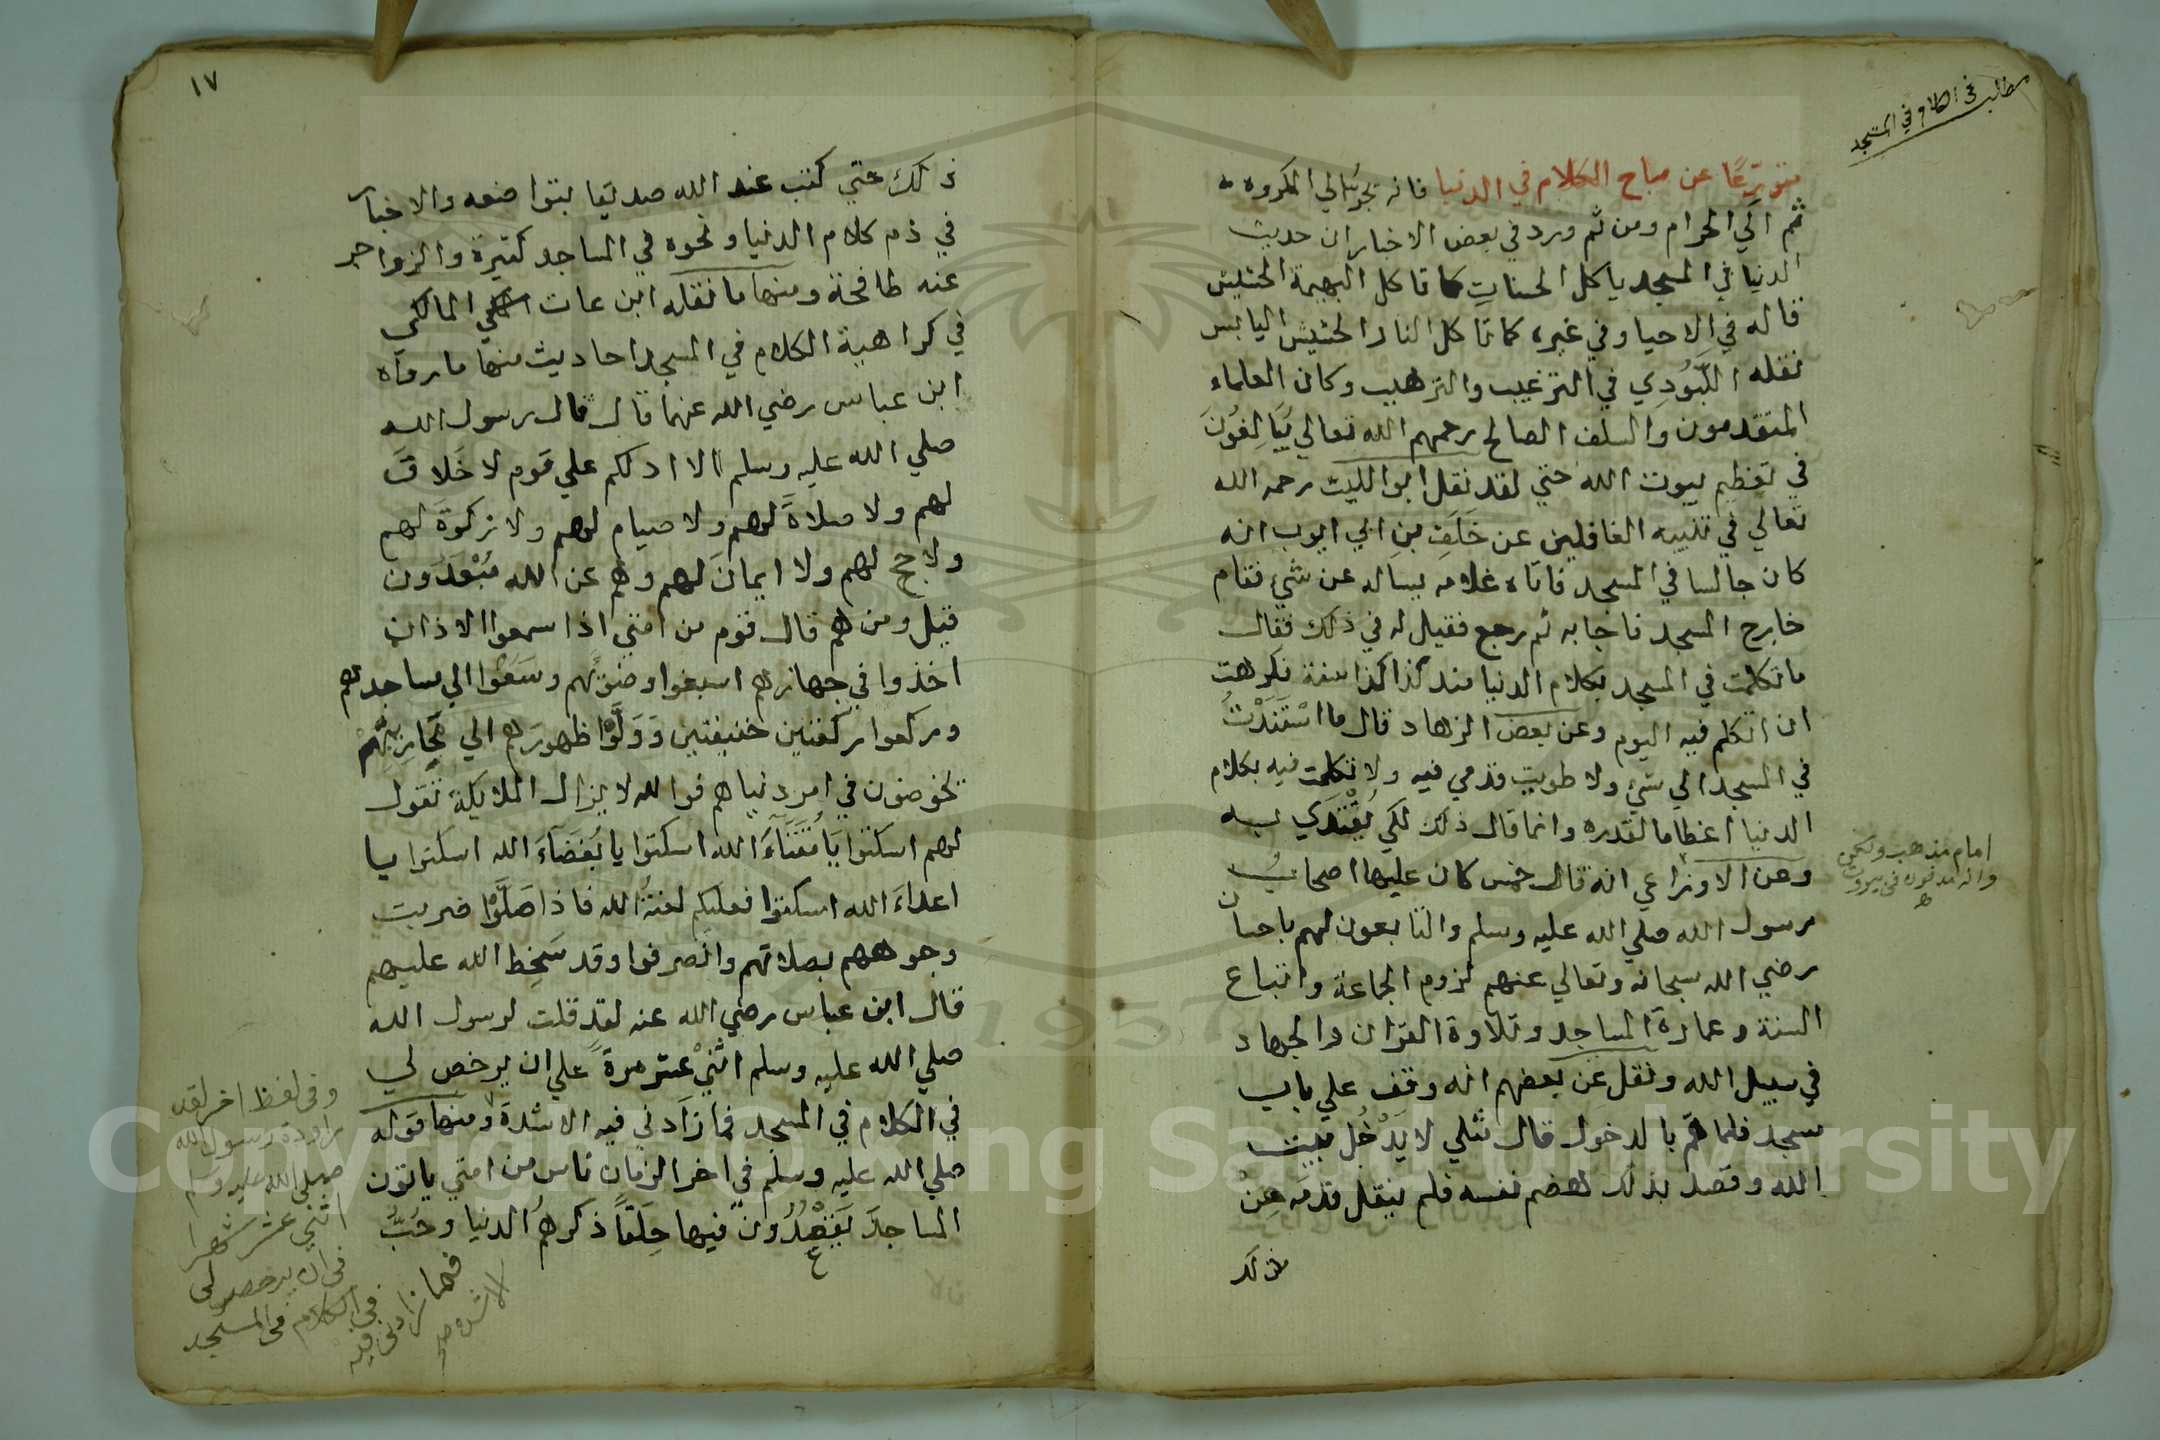 مطالب في الكلام في المسجد
متورعا عن مباح الكلام في الدنيا فانه يجرّ الي المكروه
ثم الي الحرام ومن ثم ورد في بعض الاخبار ان حديث
الدنيا في المسجد ياكل الحسنات كما تاكل البهيمة الحشيش
قاله في الاحيا وفي غيره كما تاكل النار الحشيش اليابس
نقله اللَّبُودي في الترغيب والترهيب وكان العلماء
المتقدمون والسلف الصالح رحمهم الله تعالي يُبَالِغُونَ
في تعظيم بيوت الله حتي لقد نقل ابو الليث رحمه الله
تعالي في تنبيه الغافلين عن خَلَفِ بن ابي ايوب انه
كان جالسا في المسجد فاتاه غلامه يساله عن شيٍ فقام
خارج المسجد فاجابه ثم رجع فقيل له في ذلك فقال
ما تكلمت في المسجد بكلام الدنيا منذ كذا كذا سنة فكرهت
ان اتكلم فيه اليوم وعن بعض الزهاد قال ما اسْتَنَدْتُ
في المسجد الي شيٍ ولا طويت قدمي فيه ولا تكلمت فيه بكلام
الدنيا اعظاما لقدره وانما قال ذلك لكي يُقْتَدَي به
وعن الاوزاعي انه قال خمس كان عليها اصحابُ
رسول الله صلي الله عليه وسلم والتابعون لهم باحسان
رضي الله سبحانه وتعالي عنهم لزوم الجماعة واتباع
السنة وعمارة المساجد وتلاوة القران والجهاد
في سبيل الله ونقل عن بعضهم انه وقف علي باب
مسجد فلما همّ بالدخول قال مثلي لا يَدْخُل بيت
الله وقصد بذلك هضم نفسه فلم ينقل قدمه مِنْ
ذلك
امام مذهب
في بيروت
١٧
ذلك حتي كتب عند الله صديقا بتواضعه والاخبار
في ذم كلام الدنيا ونحوه في المساجد كثيرة والزواجر
عنه طافحة ومنها ما نقله ابن عات المالكي
في كراهية الكلام في المسجد احاديث منها ما رواه
ابن عباس رضي الله عنهما قال قال رسول الله
صلي الله عليه وسلم الا ادلكم علي قوم لا خَلاقَ
لهم ولا صلاةَ لهم ولا صيام لهم ولا زكوةَ لهم
ولا حج لهم ولا ايمانَ لهم وهم عن الله مُبْعَدُون
قيل ومن هم قال قوم من امتي اذا سمعوا الاذان
اخذوا في جهازهم اسبغوا وضوَّهم وسَعَوْا الي مساجدهم
وركعوا ركعتين خفيفتين وَوَلَّوْا ظهورَهم الي مَحَارِيبِهِمْ
يخوضون في امر دنياهم فوالله لا يزال الملايكة تقول
لهم اسكتوا يَا مُقَتَاءَ الله اسكتوا يا بُغَضَاءَ الله اسكتوا يا
اعداءَ الله اسكتوا فعليكم لعنةُ الله فاذا صَلَّوْا ضربت
وجوههم بصلاتهم وانصرفوا وقد سَخِط الله عليهم
قال ابن عباس رضي الله عنه لقد قلت لرسول الله
صلي الله عليه وسلم اثنيْ عشر مرةً علي ان يرخص لي
في الكلام في المسجد فما زادني فيه الا شدة ومنها قوله
صلي الله عليه وسلم في اخر الزمان ناس من امتي ياتون
المساجدَ يَقْعُدُونَ فيها حِلَقاً ذكرهمُ الدنيا وحُبُّ
وفي لفظ اخر لقد
راودت رسول الله
صلي الله عليه وسلم
اثني عشر شهرا
في ان يرخص لي
في الكلام في المسجد
فما زادني فيه
الا شدة صح
1957
Copyright © King Saud University